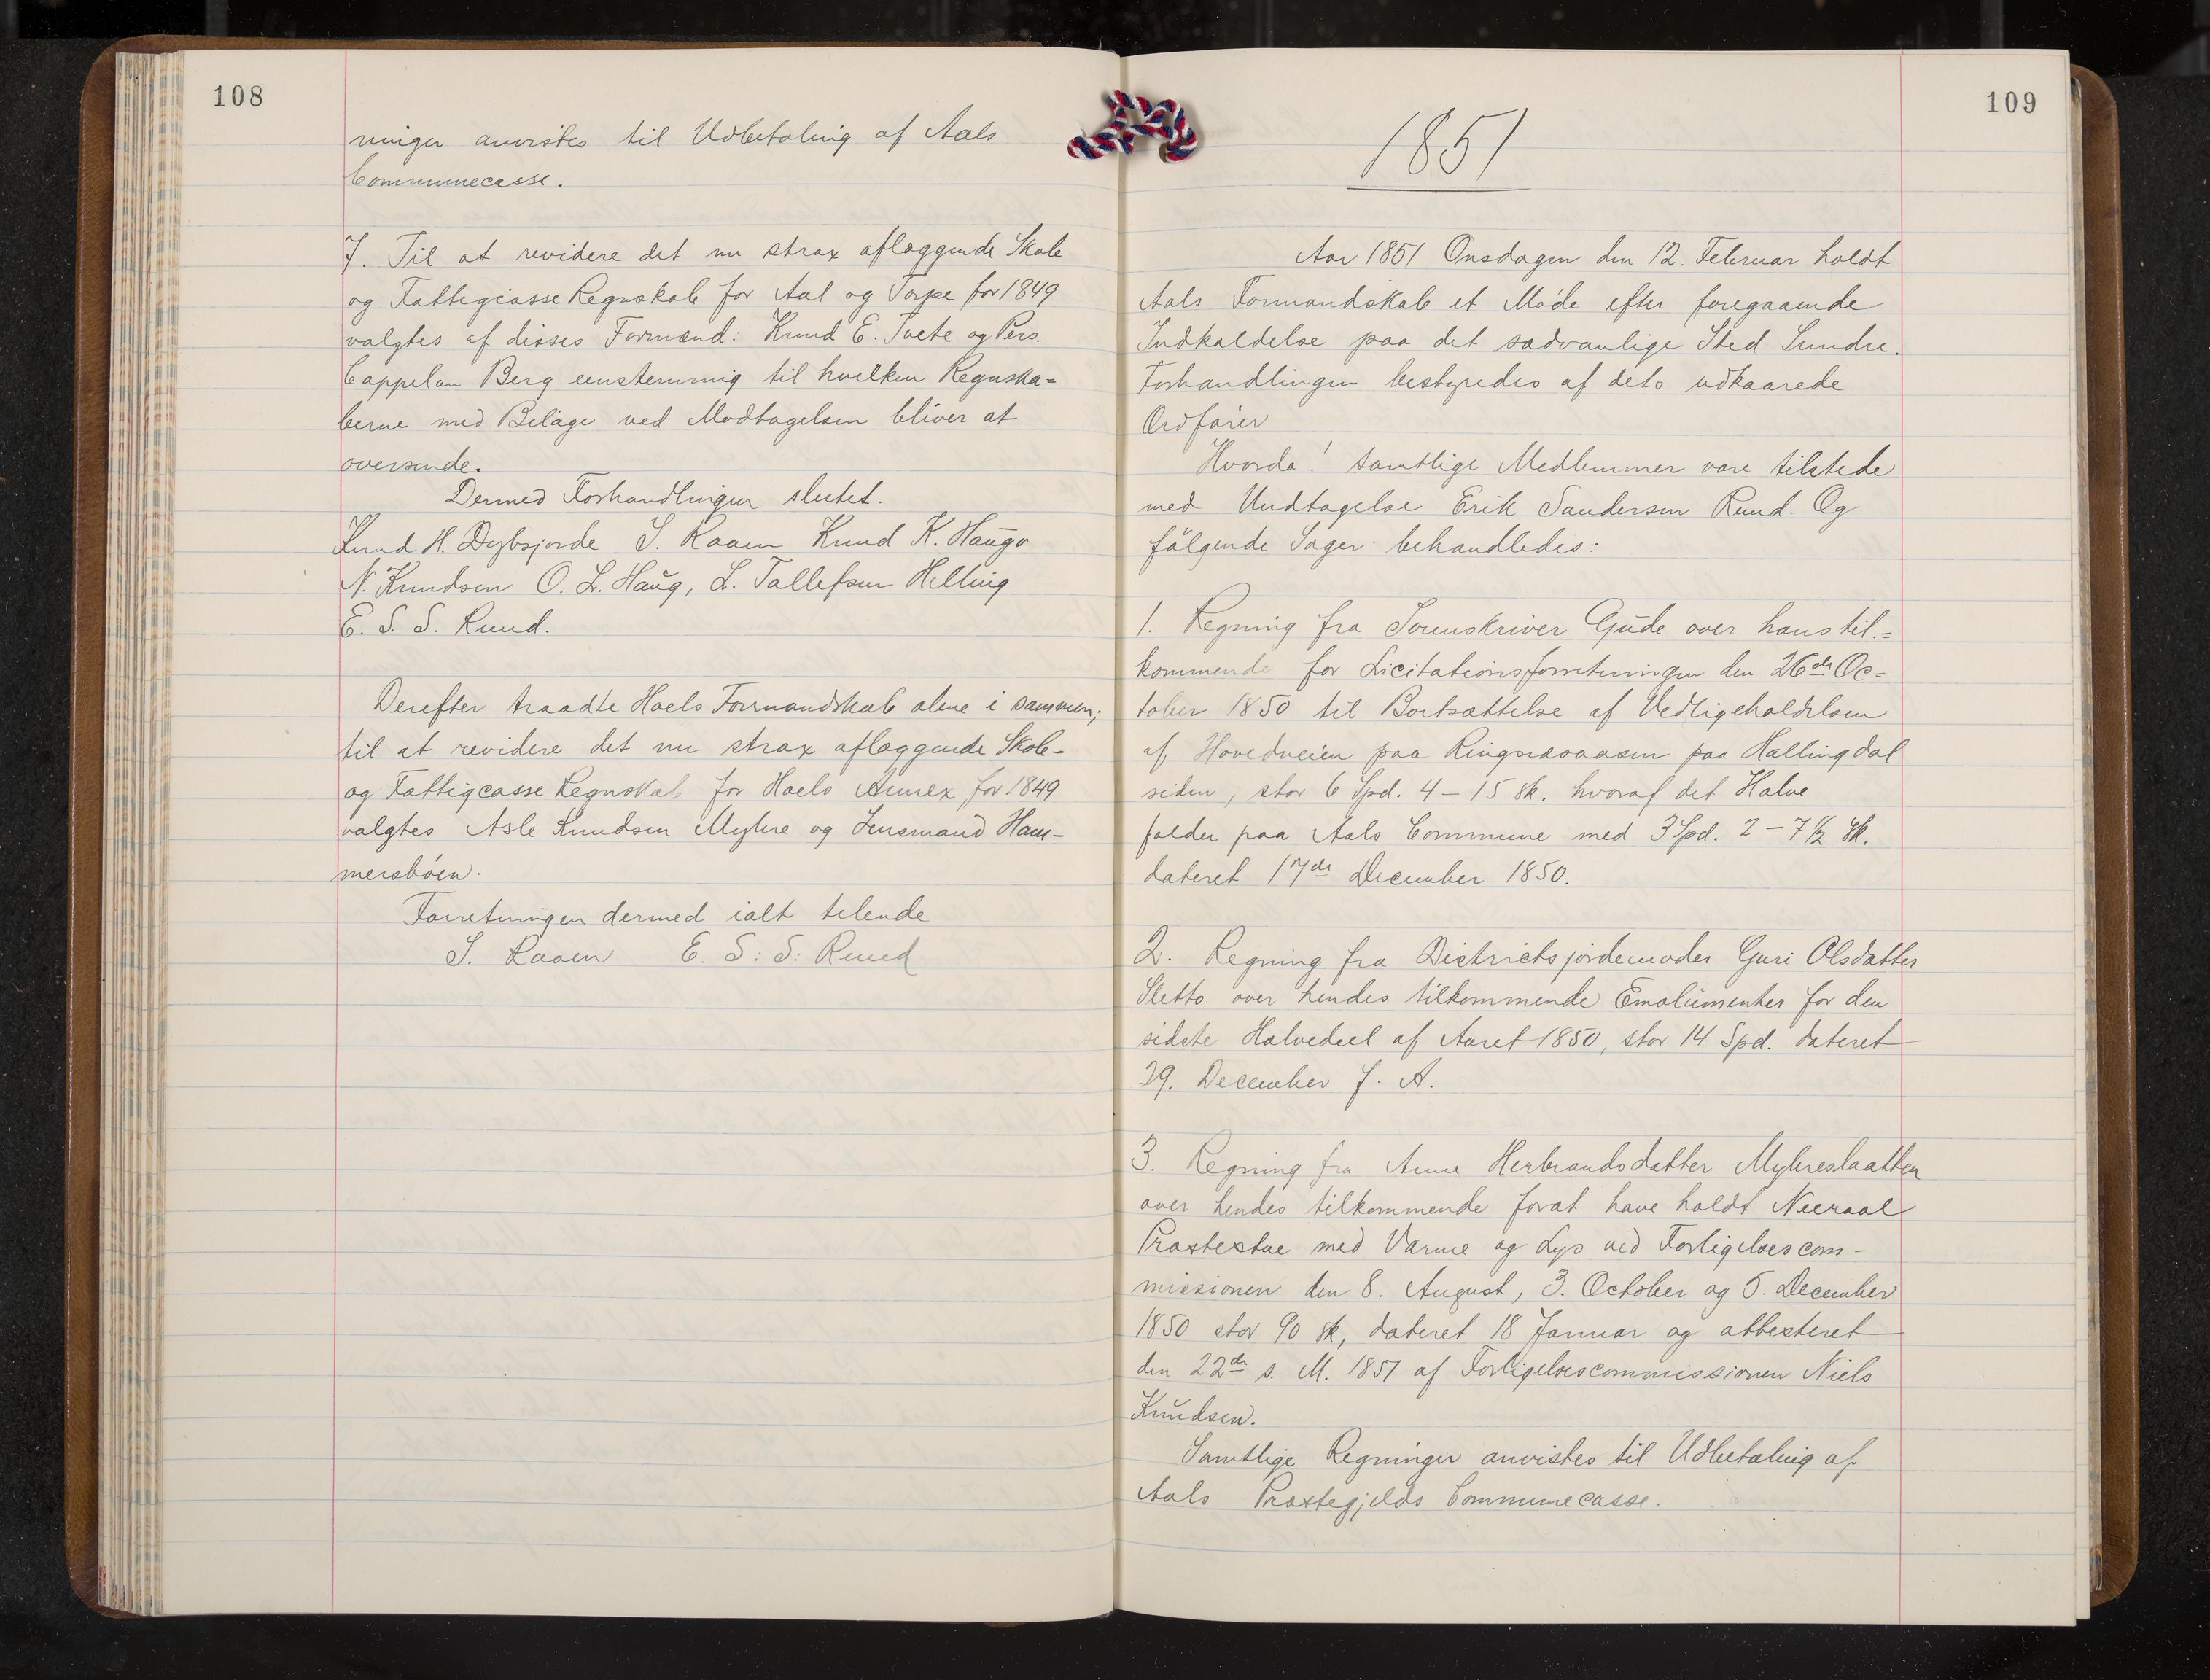 108
ninger anvistes til Udbetaling af Aals
Communecasse.
7. Til at revidere det nu strax aflæggende Skole
og Fattigcasse Regnskab for Aal og Torpe for 1849
valgtes af disses Formænd: Knud E. Tvete og Pers.
Cappelan Berg eenstemmig til hvilken Regnska=
berne med Bilage ved Modtagelsen bliver at
oversende.
Dermed Forhandlingen sluttet.
Knud H. Dybsjorde S. Raaen Knud K. Haugo
N. Knudsen O. L. Haug, L. Tollefsen Helling
E. S. S. Ruud.
Derefter traadte Hoels Formandskab alene i sammen;
til at revidere det nu strax aflæggende Skole-
og Fattigcasse Regnskab for Hoels Annex for 1849
valgtes Asle Knudsen Myhre og Lensmand Ham-
mersbøen.
Forretningen dermed ialt tilende
S. Raaen E. S: S: Ruud
109
1851
Aar 1851 Onsdagen den 12. Februar holdt
Aals Formandskab et Møde efter foregaaende
Indkaldelse paa det sædvanlige Sted Sundre.
Forhandlingen bestyredes af dets udkaarede
Ordfører
Hvorda! samtlige Medlemmer vare tilstede
med Undtagelse Erik Sandersen Ruud. Og
følgende Sager behandledes:
1. Regning fra Sorenskriver Gude over hans til.=
kommende for Licitationsforretningen den 26de Oc=
tober 1850 til Bortsættelse af Vedligeholdelsen
af Hovedveien paa Ringnæsaasen paa Hallingdal
siden, stor 6 Spd. 4 - 15 sk. hvoraf det Halve
falder paa Aals Commune med 3 Spd. 2 - 7 1/2 sk.
dateret 17de December 1850.
2. Regning fra Districtsjordemoder Guri Olsdatter
Sletto over hendes tilkommende Emolumenter for den
sidste Halvedeel af Aaret 1850, stor 14 Spd. dateret
29. December f. A.
3. Regning fra Anne Herbrandsdatter Myhreslaatten
over hendes tilkommende forat have holdt Neeraal
Præstestue med Varme og Lys ved Forligelsescom-
missionen den 8. August, 3. October og 5. December
1850 stor 90 sk, dateret 18 Januar og attesteret
den 22de s. M. 1851 af Forligelsescommissionen Niels
Knudsen.
Samtlige Regninger anvistes til Udbetaling af
Aals Præstegjelds Communecasse.